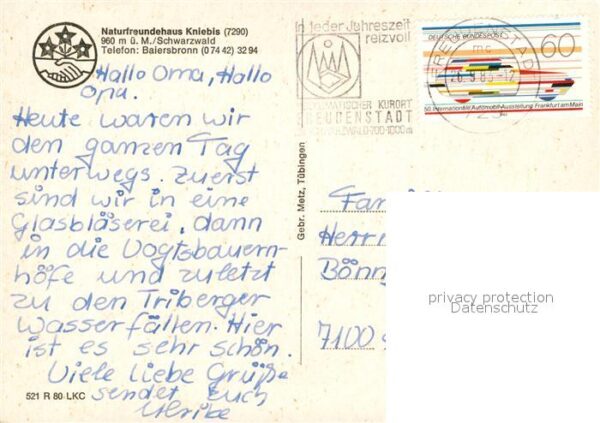 Naturfreundehaus Kniebis (7290)
960 m ü. M./Schwarzwald
Telefon: Baiersbronn (0 74 42) 32 94
Hallo Oma, Hallo
Opa.
Heute waren wir
den ganzen Tag
unterwegs. Zuerst
sind wir in eine
Glasbläserei, dann
in die Vogtsbauern-
höfe und zuletzt
zu den Triberger
Wasserfällen. Hier
ist es sehr schön.
Viele liebe Grüße
sendet Euch
Ulrike
521 R 80 LKC
Gebr. Metz, Tübingen
In jeder Jahreszeit
reizvoll
KURORT
FREUDENSTADT
SCHWARZWALD·700-1000m
DEUTSCHE BUNDESPOST
60
50. Internationale Automobil-Ausstellung Frankfurt am Main
Herrn
7100
privacy protection
Datenschutz